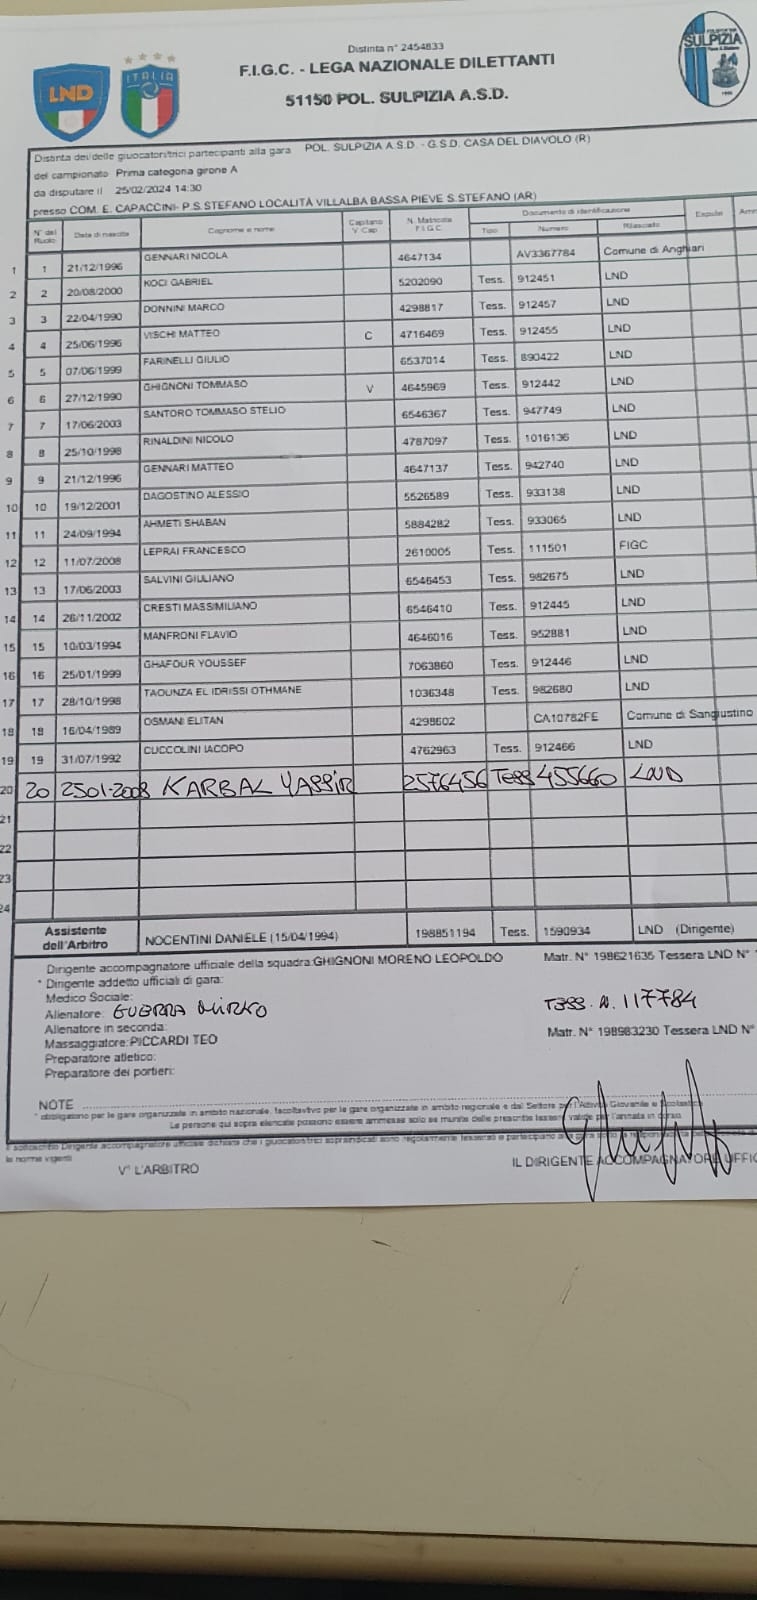 Distinta n° 2454833
F.I.G.C. - LEGA NAZIONALE DILETTANTI
51150 POL. SULPIZIA A.S.D.
LND
ITALIA
SULPIZIA
Distinta dei/delle giuocatori/trici partecipanti alla gara POL. SULPIZIA A.S.D. - G.S.D. CASA DEL DIAVOLO (R)
del campionato Prima categoria girone A
da disputare il 25/02/2024 14:30
presso COM. E. CAPACCINI- P.S.STEFANO LOCALITÀ VILLALBA BASSA PIEVE S.STEFANO (AR)
N° del Ruolo Data di nascita Cognome e nome Capitano V.Cap N. Matricola F.I.G.C. Documento di identificazione Tipo Numero Rilasciato Espulsi
1 1 21/12/1996 GENNARI NICOLA 4647134 AV3367784 Comune di Anghiari
2 2 20/08/2000 KOCI GABRIEL 5202090 Tess. 912451 LND
3 3 22/04/1990 DONNINI MARCO 4298817 Tess. 912457 LND
4 4 25/06/1996 VISCHI MATTEO C 4716469 Tess. 912455 LND
5 5 07/06/1999 FARINELLI GIULIO 6537014 Tess. 890422 LND
6 6 27/12/1990 GHIGNONI TOMMASO V 4645969 Tess. 912442 LND
7 7 17/06/2003 SANTORO TOMMASO STELIO 6546367 Tess. 947749 LND
8 8 25/10/1998 RINALDINI NICOLO 4787097 Tess. 1016136 LND
9 9 21/12/1996 GENNARI MATTEO 4647137 Tess. 942740 LND
10 10 19/12/2001 DAGOSTINO ALESSIO 5526589 Tess. 933138 LND
11 11 24/09/1994 AHMETI SHABAN 5884282 Tess. 933065 LND
12 12 11/07/2008 LEPRAI FRANCESCO 2610005 Tess. 111501 FIGC
13 13 17/06/2003 SALVINI GIULIANO 6546453 Tess. 982675 LND
14 14 26/11/2002 CRESTI MASSIMILIANO 6546410 Tess. 912445 LND
15 15 10/03/1994 MANFRONI FLAVIO 4646016 Tess. 952881 LND
16 16 25/01/1999 GHAFOUR YOUSSEF 7063860 Tess. 912446 LND
17 17 28/10/1998 TAOUNZA EL IDRISSI OTHMANE 1036348 Tess. 982680 LND
18 18 16/04/1989 OSMANI ELITAN 4298602 CA10782FE Comune di Sangiustino
19 19 31/07/1992 CUCCOLINI IACOPO 4762963 Tess. 912466 LND
20 20 2501-2008 KARBAL YASSIR 2576456 Tess 455660 LND
21
22
23
24
Assistente dell'Arbitro NOCENTINI DANIELE (15/04/1994) 198851194 Tess. 1590934 LND (Dirigente)
Dirigente accompagnatore ufficiale della squadra:GHIGNONI MORENO LEOPOLDO Matr. N° 198621635 Tessera LND N°
* Dirigente addetto ufficiali di gara:
Medico Sociale:
Allenatore: GUERRA MIRKO Tess. N. 117784
Allenatore in seconda:
Massaggiatore:PICCARDI TEO Matr. N° 198983230 Tessera LND N°
Preparatore atletico:
Preparatore dei portieri:
NOTE
* obbligatorio per le gare organizzate in ambito nazionale, facoltativo per le gare organizzate in ambito regionale e dal Settore per l'Attività Giovanile e Scolastica
Le persone qui sopra elencate possono essere ammesse solo se munite delle prescritte tessere valide per l'annata in corso
Il sottoscritto Dirigente accompagnatore ufficiale dichiara che i giuocatori/trici sopraindicati sono regolarmente tesserati e partecipano alla gara sotto la responsabilità
le norme vigenti
V° L'ARBITRO IL DIRIGENTE ACCOMPAGNATORE UFFIC